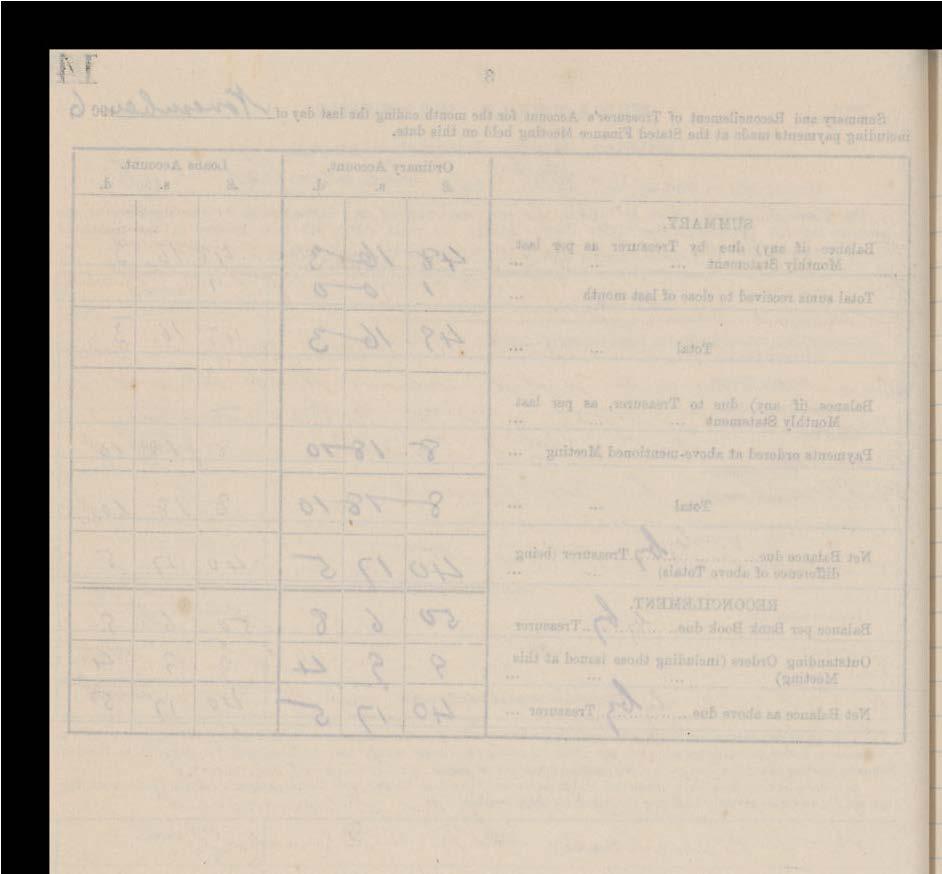 14
3
Summary and Reconcilement of Treasurer's Account for the month ending the last day of November 1906
including payments made at the Stated Finance Meeting held on this date.
Ordinary Account. Loans Account.
£ s. d. £ s. d.
SUMMARY.
Balance (if any) due by Treasurer as per last
Monthly Statement ... .. ... 48 16 3
Total sums received to close of last month ... 1 0 0
Total ... ... 49 16 3
Balance (if any) due to Treasurer, as per last
Monthly Statement ... ... ...
Payments ordered at above-mentioned Meeting ... 8 18 10
Total ... ... 8 18 10
Net Balance due by Treasurer (being
difference of above Totals) ... ... 40 17 5
RECONCILEMENT.
Balance per Bank Book due by Treasurer 50 6 8
Outstanding Orders (including those issued at this
Meeting) ... ... ... 9 9 4
Net Balance as above due by Treasurer ... 40 17 5